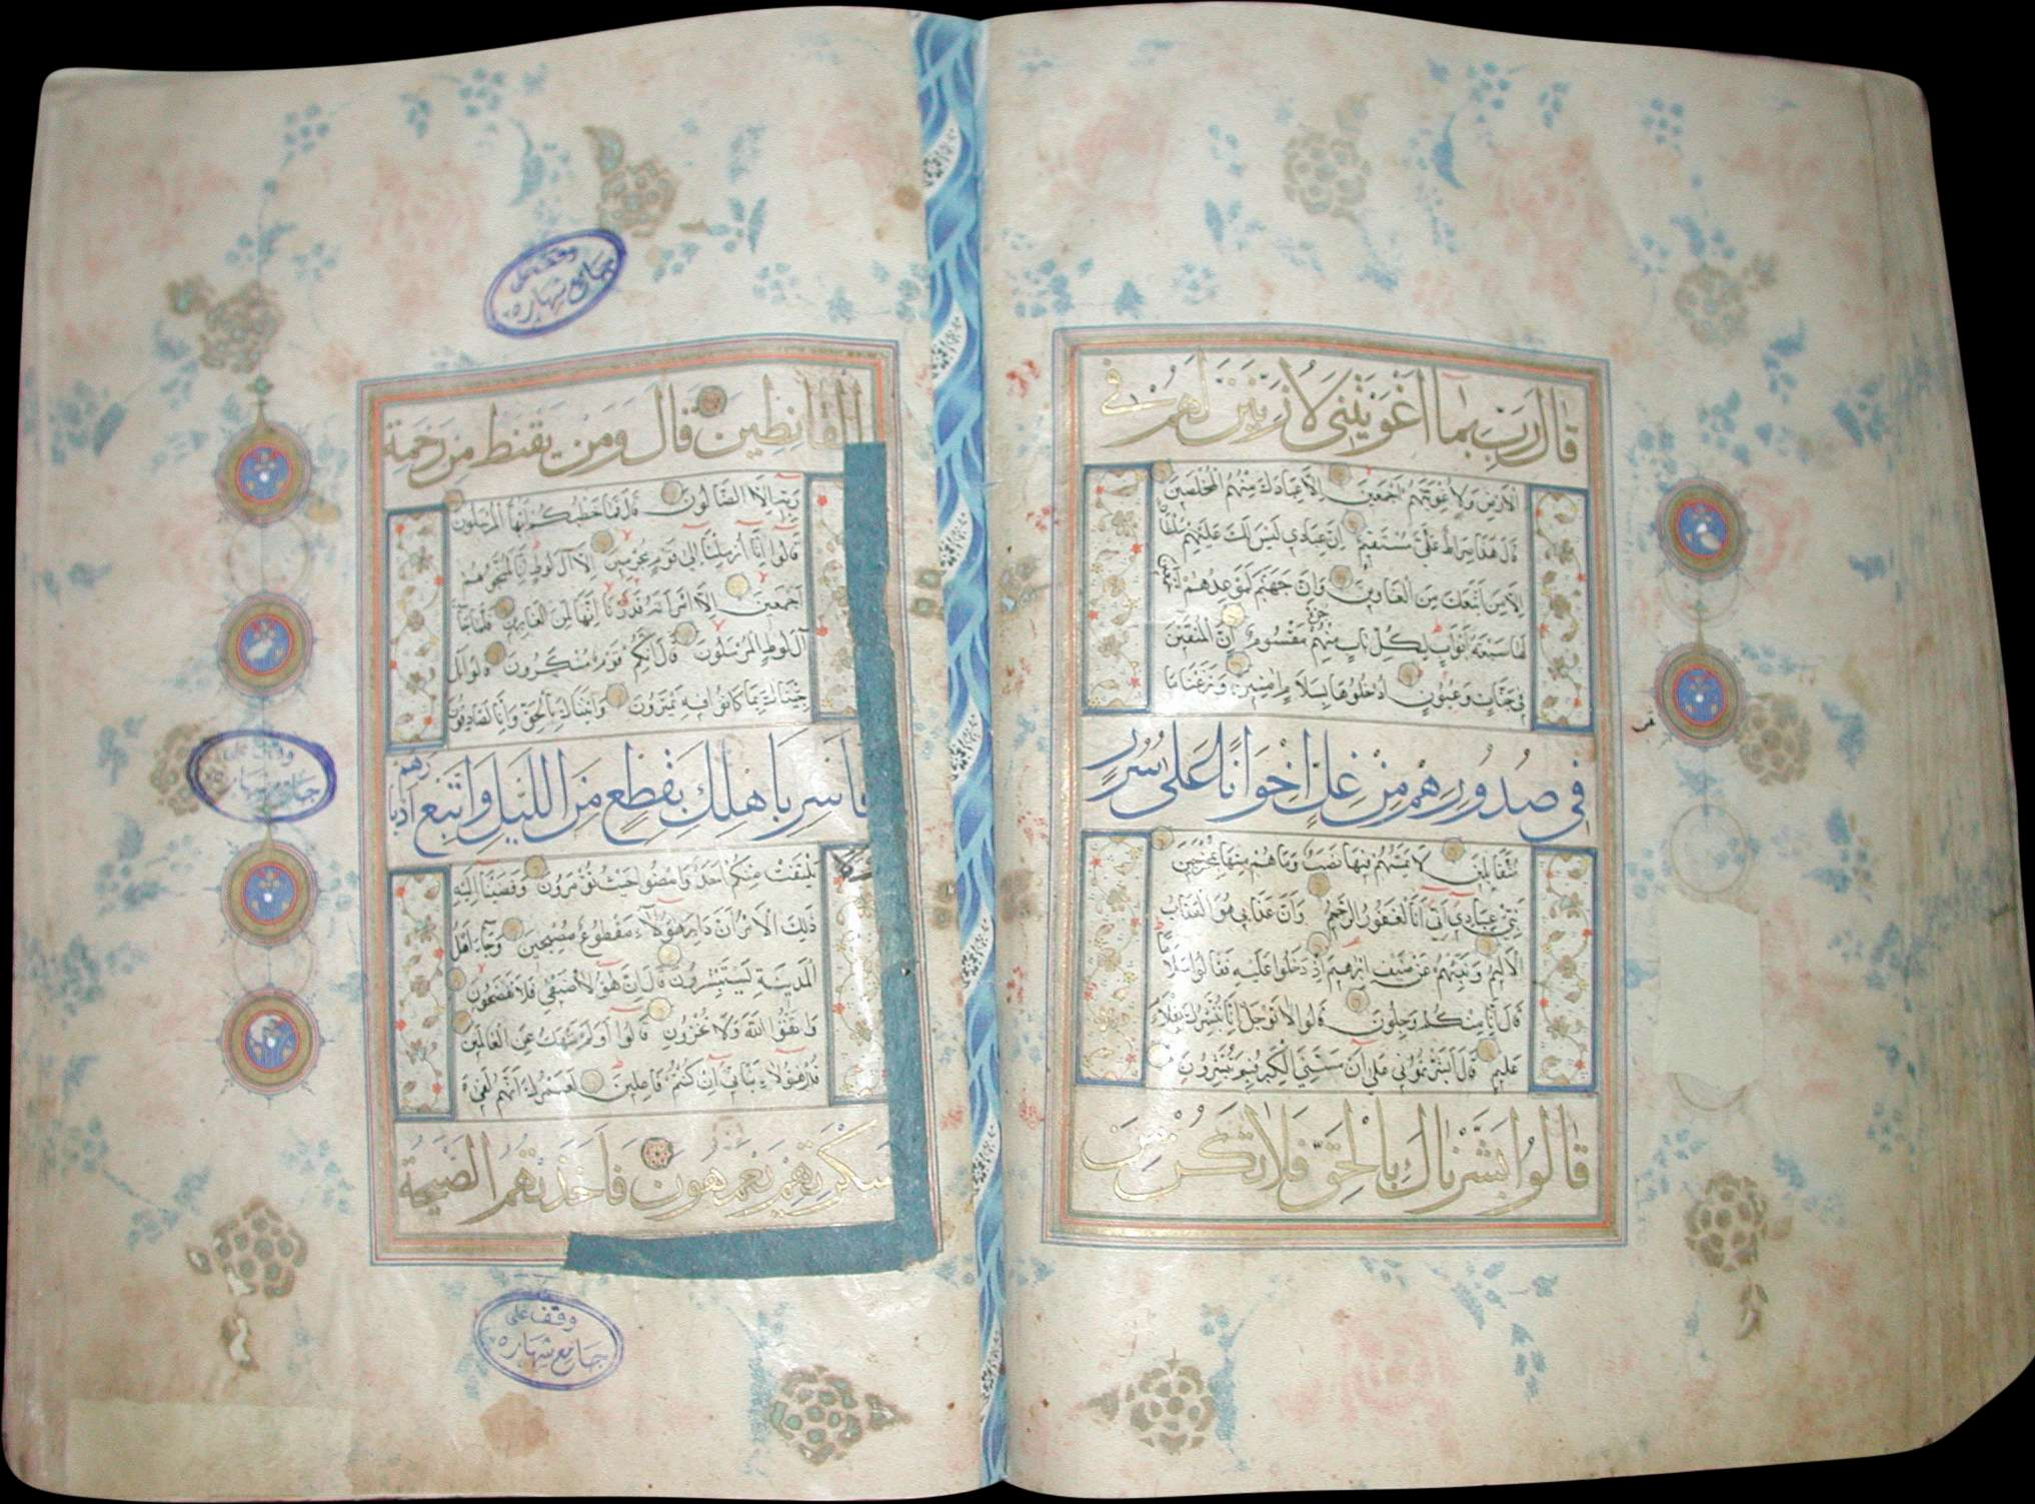 قَالَ رَبِّ بِمَا أَغْوَيْتَنِي لَأُزَيِّنَنَّ لَهُمْ فِي
الْأَرْضِ وَلَأُغْوِيَنَّهُمْ أَجْمَعِينَ إِلَّا عِبَادَكَ مِنْهُمُ الْمُخْلَصِينَ
قَالَ هَذَا صِرَاطٌ عَلَيَّ مُسْتَقِيمٌ إِنَّ عِبَادِي لَيْسَ لَكَ عَلَيْهِمْ سُلْطَانٌ
إِلَّا مَنِ اتَّبَعَكَ مِنَ الْغَاوِينَ وَإِنَّ جَهَنَّمَ لَمَوْعِدُهُمْ أَجْمَعِينَ
لَهَا سَبْعَةُ أَبْوَابٍ لِكُلِّ بَابٍ مِنْهُمْ جُزْءٌ مَقْسُومٌ إِنَّ الْمُتَّقِينَ
فِي جَنَّاتٍ وَعُيُونٍ ادْخُلُوهَا بِسَلَامٍ آمِنِينَ وَنَزَعْنَا مَا
فِي صُدُورِهِمْ مِنْ غِلٍّ إِخْوَانًا عَلَى سُرُرٍ
مُتَقَابِلِينَ لَا يَمَسُّهُمْ فِيهَا نَصَبٌ وَمَا هُمْ مِنْهَا بِمُخْرَجِينَ
نَبِّئْ عِبَادِي أَنِّي أَنَا الْغَفُورُ الرَّحِيمُ وَأَنَّ عَذَابِي هُوَ الْعَذَابُ
الْأَلِيمُ وَنَبِّئْهُمْ عَنْ ضَيْفِ إِبْرَاهِيمَ إِذْ دَخَلُوا عَلَيْهِ فَقَالُوا سَلَامًا
قَالَ إِنَّا مِنْكُمْ وَجِلُونَ قَالُوا لَا تَوْجَلْ إِنَّا نُبَشِّرُكَ بِغُلَامٍ
عَلِيمٍ قَالَ أَبَشَّرْتُمُونِي عَلَى أَنْ مَسَّنِيَ الْكِبَرُ فَبِمَ تُبَشِّرُونَ
قَالُوا بَشَّرْنَاكَ بِالْحَقِّ فَلَا تَكُنْ مِنَ
وقف على
جامع شهاره
الْقَانِطِينَ قَالَ وَمَنْ يَقْنَطُ مِنْ رَحْمَةِ
رَبِّهِ إِلَّا الضَّالُّونَ قَالَ فَمَا خَطْبُكُمْ أَيُّهَا الْمُرْسَلُونَ
قَالُوا إِنَّا أُرْسِلْنَا إِلَى قَوْمٍ مُجْرِمِينَ إِلَّا آلَ لُوطٍ إِنَّا لَمُنَجُّوهُمْ
أَجْمَعِينَ إِلَّا امْرَأَتَهُ قَدَّرْنَا إِنَّهَا لَمِنَ الْغَابِرِينَ فَلَمَّا جَاءَ
آلَ لُوطٍ الْمُرْسَلُونَ قَالَ إِنَّكُمْ قَوْمٌ مُنْكَرُونَ قَالُوا بَلْ
جِئْنَاكَ بِمَا كَانُوا فِيهِ يَمْتَرُونَ وَأَتَيْنَاكَ بِالْحَقِّ وَإِنَّا لَصَادِقُونَ
فَأَسْرِ بِأَهْلِكَ بِقِطْعٍ مِنَ اللَّيْلِ وَاتَّبِعْ أَدْبَارَهُمْ
يَلْتَفِتْ مِنْكُمْ أَحَدٌ وَامْضُوا حَيْثُ تُؤْمَرُونَ وَقَضَيْنَا إِلَيْهِ
ذَلِكَ الْأَمْرَ أَنَّ دَابِرَ هَؤُلَاءِ مَقْطُوعٌ مُصْبِحِينَ وَجَاءَ أَهْلُ
الْمَدِينَةِ يَسْتَبْشِرُونَ قَالَ إِنَّ هَؤُلَاءِ ضَيْفِي فَلَا تَفْضَحُونِ
وَاتَّقُوا اللَّهَ وَلَا تُخْزُونِ قَالُوا أَوَلَمْ نَنْهَكَ عَنِ الْعَالَمِينَ
قَالَ هَؤُلَاءِ بَنَاتِي إِنْ كُنْتُمْ فَاعِلِينَ لَعَمْرُكَ إِنَّهُمْ لَفِي
سَكْرَتِهِمْ يَعْمَهُونَ فَأَخَذَتْهُمُ الصَّيْحَةُ
وقف على
جامع شهاره
وقف على
جامع شهاره